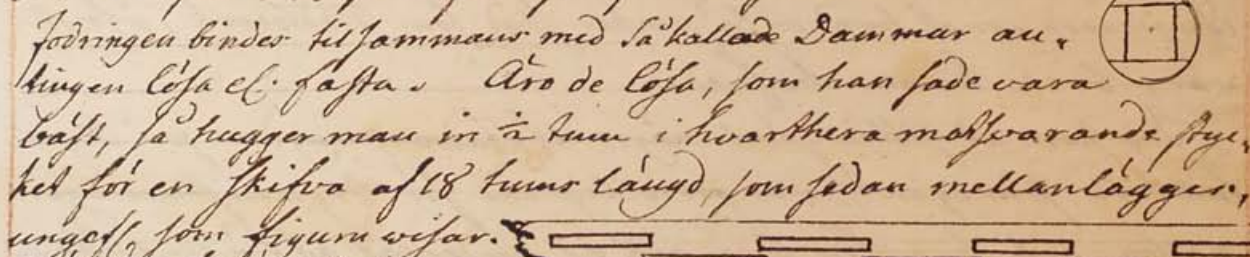 fodringen bindes tilsammans med så kallade Dammar an-
tingen lösa el. fasta. Äro de lösa, som han sade vara
bäst, så hugger man in ½ tum i hvarthera motsvarande styc-
ket för en skifva af 18 tums längd, som sedan mellanlägges,
ungef. som figuren wisar.